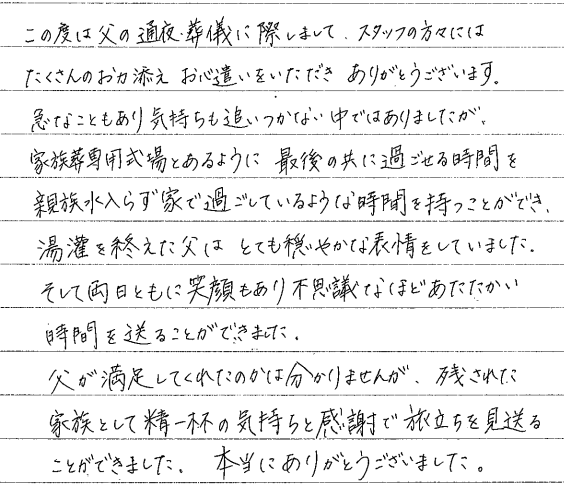 この度は父の通夜・葬儀に際しまして、スタッフの方々には
たくさんのお力添え お心遣いをいただき ありがとうございます。
急なこともあり気持ちも追いつかない中ではありましたが、
家族葬専用式場とあるように 最後の共に過ごせる時間を
親族水入らず家で過ごしているような時間を持つことができ、
湯灌を終えた父は とても穏やかな表情をしていました。
そして両日ともに笑顔もあり不思議なほどあたたかい
時間を送ることができました。
父が満足してくれたのかは分かりませんが、残された
家族として精一杯の気持ちと感謝で旅立ちを見送る
ことができました。 本当にありがとうございました。